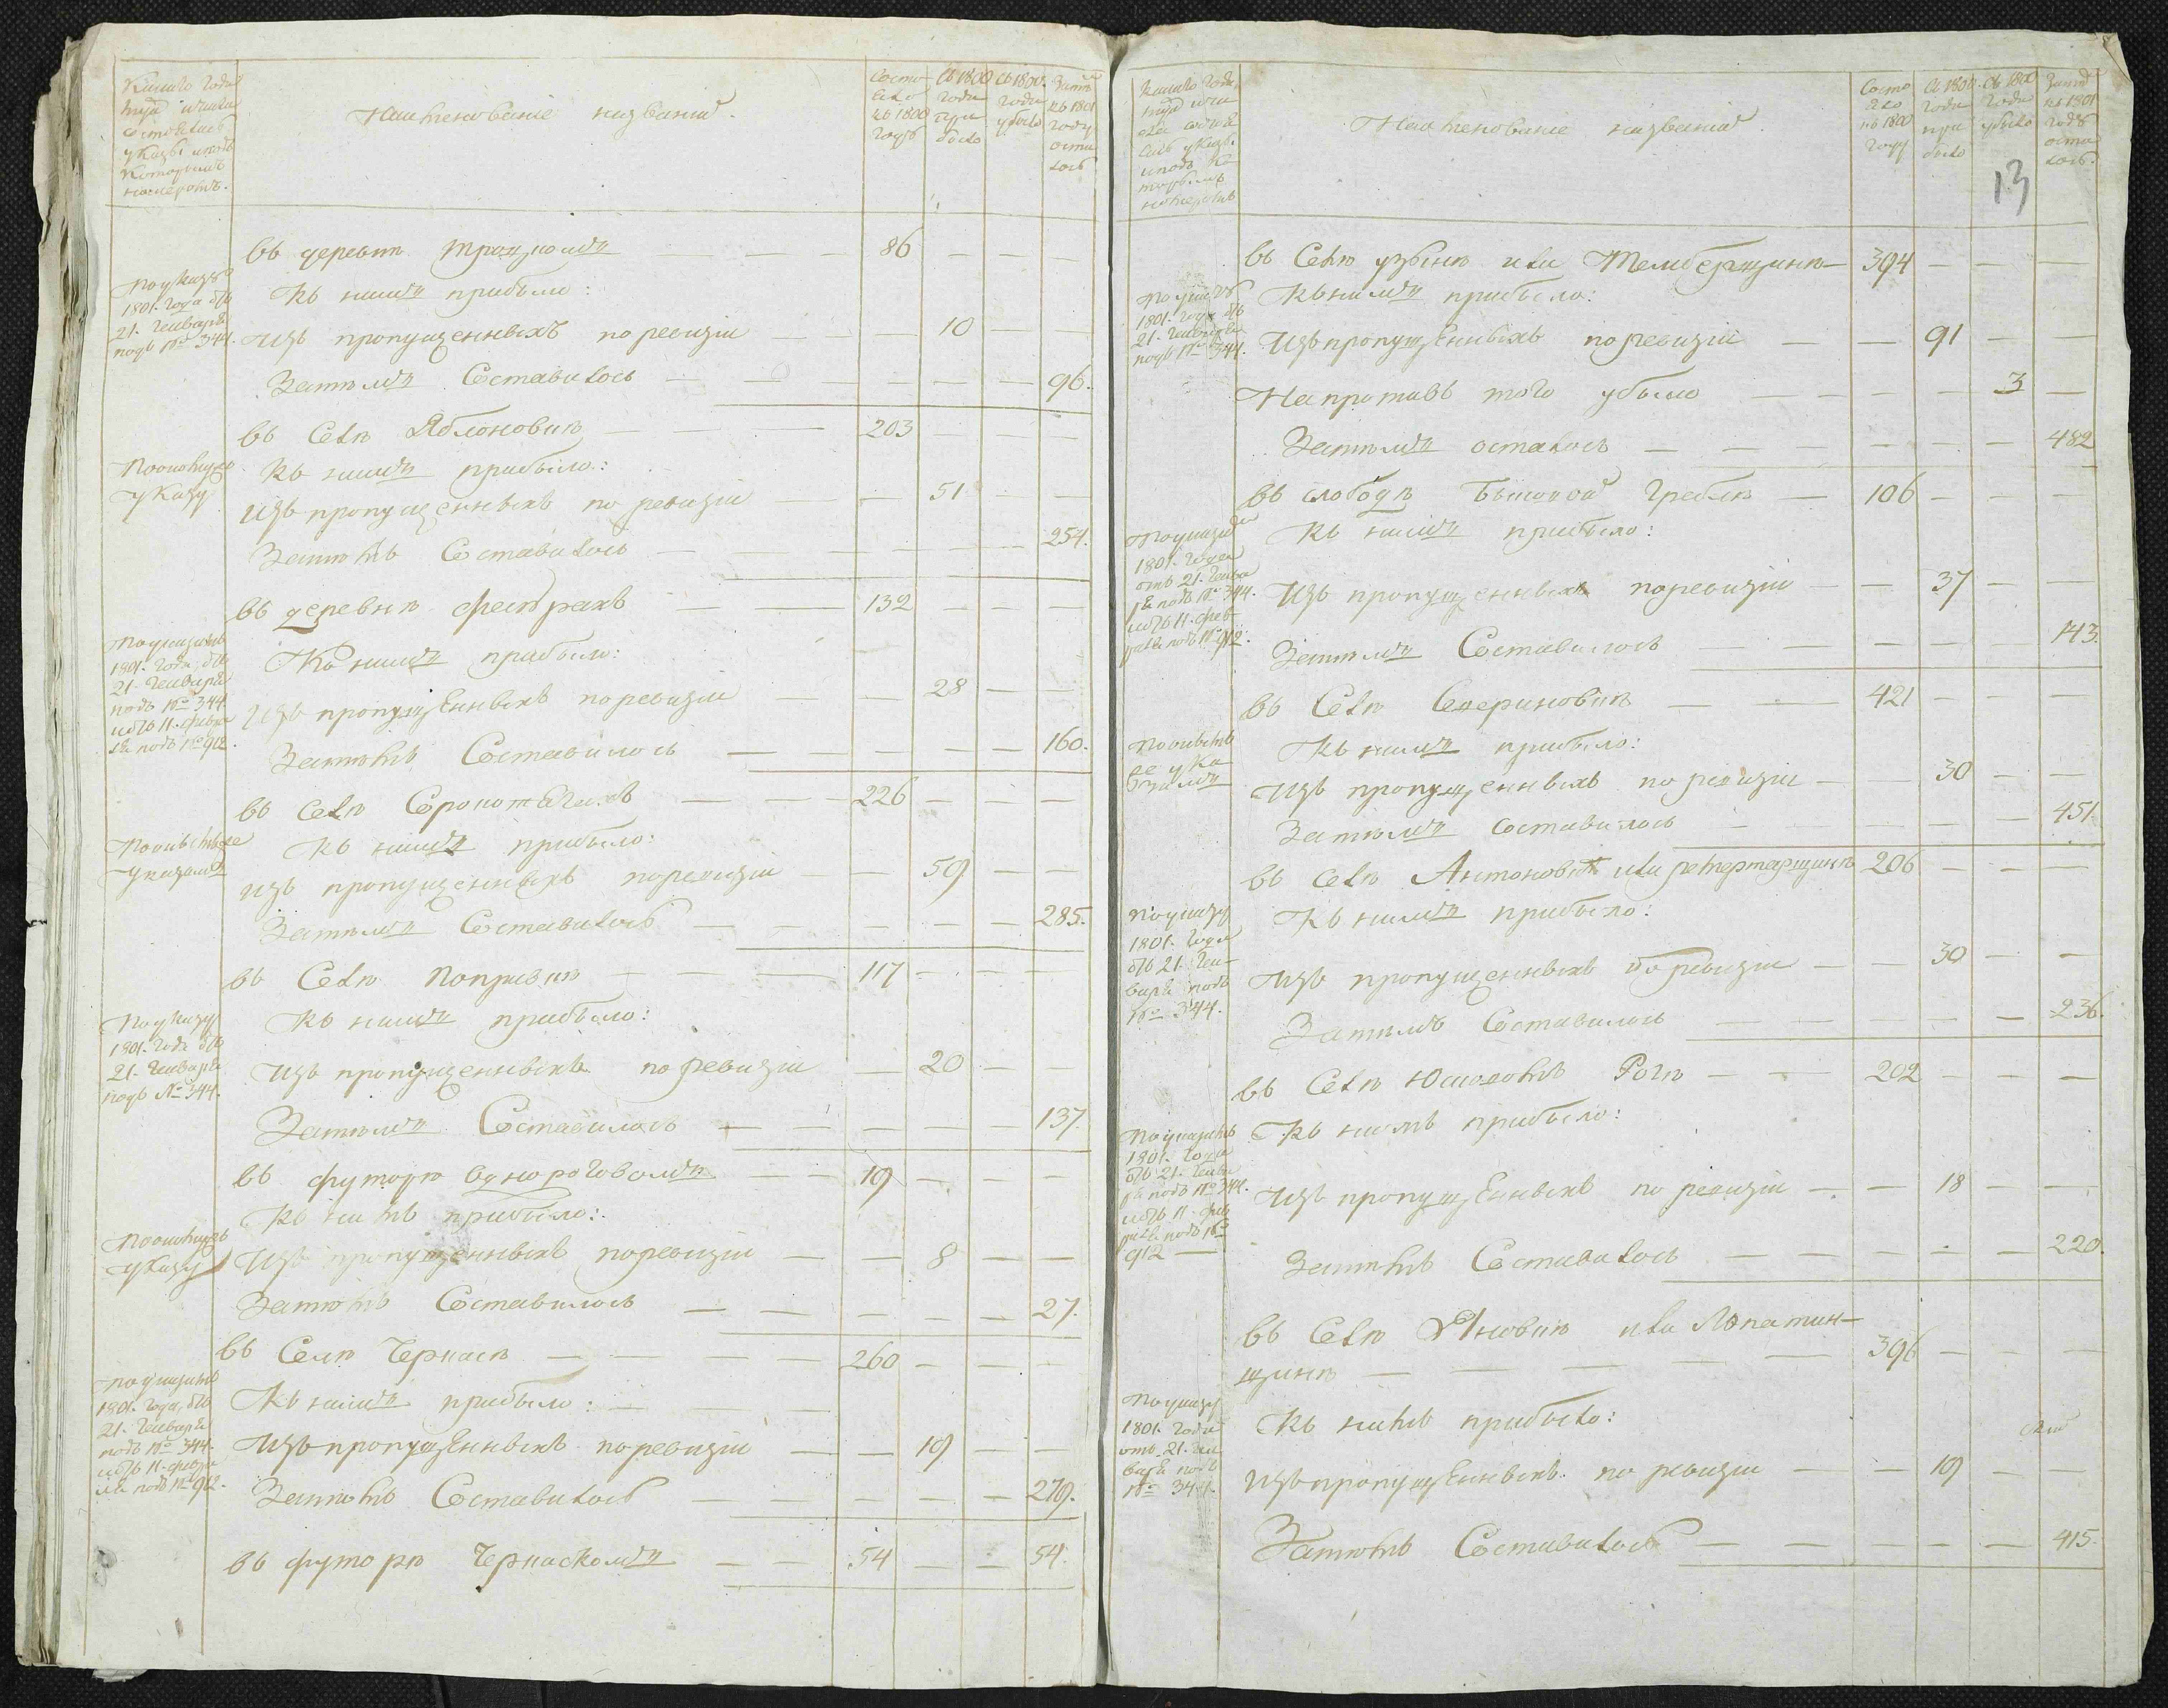 Котораго года
месяца и числа
состоялись
указы и подъ
которымъ
номеромъ.
Наименованiе названiй.
Состо
яло
къ 1800
году
Съ 1800
года
при
было
Съ 1800
года
убыло
Затѣмъ
къ 1801
году
оста
лось
въ деревнѣ Троцкомъ — — — — 86 — — —
По указу
1801. года отъ
21. Генваря
подъ №о 344.
Къ нимъ прибыло:
Изъ пропущенныхъ по ревизiи — — — 10 — —
Затѣмъ Составилось — — — — — — 96.
въ Селѣ Яблоновкѣ — — — 203 — — —
По оному
указу
Къ нимъ прибыло:
Изъ пропущенныхъ по ревизiи — — 51 — —
Затѣмъ Составилось — — — — — 254.
въ деревнѣ — — 132 — — —
По указамъ
1801. года отъ
21. Генваря
подъ №о 344
и отъ 11. февра
ля подъ №о 912.
Къ нимъ прибыло:
Изъ пропущенныхъ по ревизiи — — 28 — —
Затѣмъ Составилось — — — — — 160.
въ Селѣ Сорокотягахъ — — — 226 — — —
По онымъ же
указамъ
Къ нимъ прибыло:
Изъ пропущенныхъ по ревизiи — — 59 — —
Затѣмъ Составилось — — — — — 285.
въ Селѣ Поправкѣ — — — 117 — — —
По указу
1801. года отъ
21. Генваря
подъ №о 344.
Къ нимъ прибыло:
Изъ пропущенныхъ по ревизiи — 20 — —
Затѣмъ Составилось — — — — — 137.
въ футорѣ Одnороговомъ — — 19 — — —
По оному
указу
Къ нимъ прибыло:
Изъ пропущенныхъ по ревизiи — — 8 — —
Затѣмъ Составилось — — — — — 27.
въ Селѣ Черкасѣ — — — — 260 — — —
По указамъ
1801. года, отъ
21. Генваря
подъ №о 344.
и отъ 11. февра
ля подъ №о 912.
Къ нимъ прибыло: — — —
Изъ пропущенныхъ по ревизiи — — 19 — —
Затѣмъ Составилось — — — — — 279.
въ футорѣ Черкаскомъ — — 54 — — 54.
Котораго года
месяца и чи
сла состоя
лись указы
и подъ ко
торымъ
номеромъ
Наименованiе названiй
Состо
яло
къ 1800
году
Съ 1800
года
при
было
Съ 1800
года
убыло
Затѣмъ
къ 1801
году
оста
лось.
13
въ Селѣ Узынѣ или Темберщинѣ 394 — — —
По указу
1801. года отъ
21. Генваря
подъ №о 344.
Къ нимъ прибыло:
Изъ пропущенныхъ по ревизiи — — 91 — —
Напротивъ того убыло — — — — 3 —
Затѣмъ осталось — — — — — — 482
въ слободѣ Быковой Греблѣ — 106 — — —
По указамъ
1801. года
отъ 21. Генва
ря подъ №о 344.
и отъ 11. фев
раля подъ №о 912.
Къ нимъ прибыло:
Изъ пропущенныхъ по ревизiи — — 37 — —
Затѣмъ Составилось — — — — — 143.
въ Селѣ Севериновкѣ — — 421 — — —
По онымъ
же ука
замъ
Къ нимъ прибыло:
Изъ пропущенныхъ по ревизiи — — 30 — —
Затѣмъ составилось — — — — — 451.
въ Селѣ Антоновкѣ или 206 — — —
По указу
1801. года
отъ 21. Ген-
варя подъ
№о 344.
Къ нимъ прибыло:
Изъ пропущенныхъ по ревизiи — — 30 — —
Затѣмъ Составилось — — — — — 236.
въ Селѣ Юшковомъ Рогѣ — — 202 — — —
По указамъ
1801. года
отъ 21. Генва
ря подъ №о 344.
и отъ 11. фев
раля подъ №о
912 —
Къ нимъ прибыло:
Изъ пропущенныхъ по ревизiи — — 18 — —
Затѣмъ Составилось — — — — — 220.
въ Селѣ Яновкѣ или Лопатин-
щинѣ — — — — — 396 — — —
По указу
1801. года
отъ 21. Ген
варя подъ
№о 344.
Къ нимъ прибыло:
Изъ пропущенныхъ по ревизiи — — 19 — —
Затѣмъ Составилось — — — — — 415.